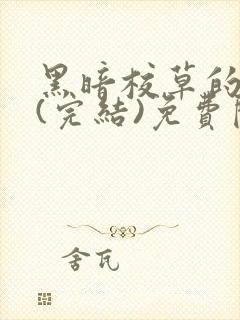 黑暗校草的
(完結)免費
舍瓦